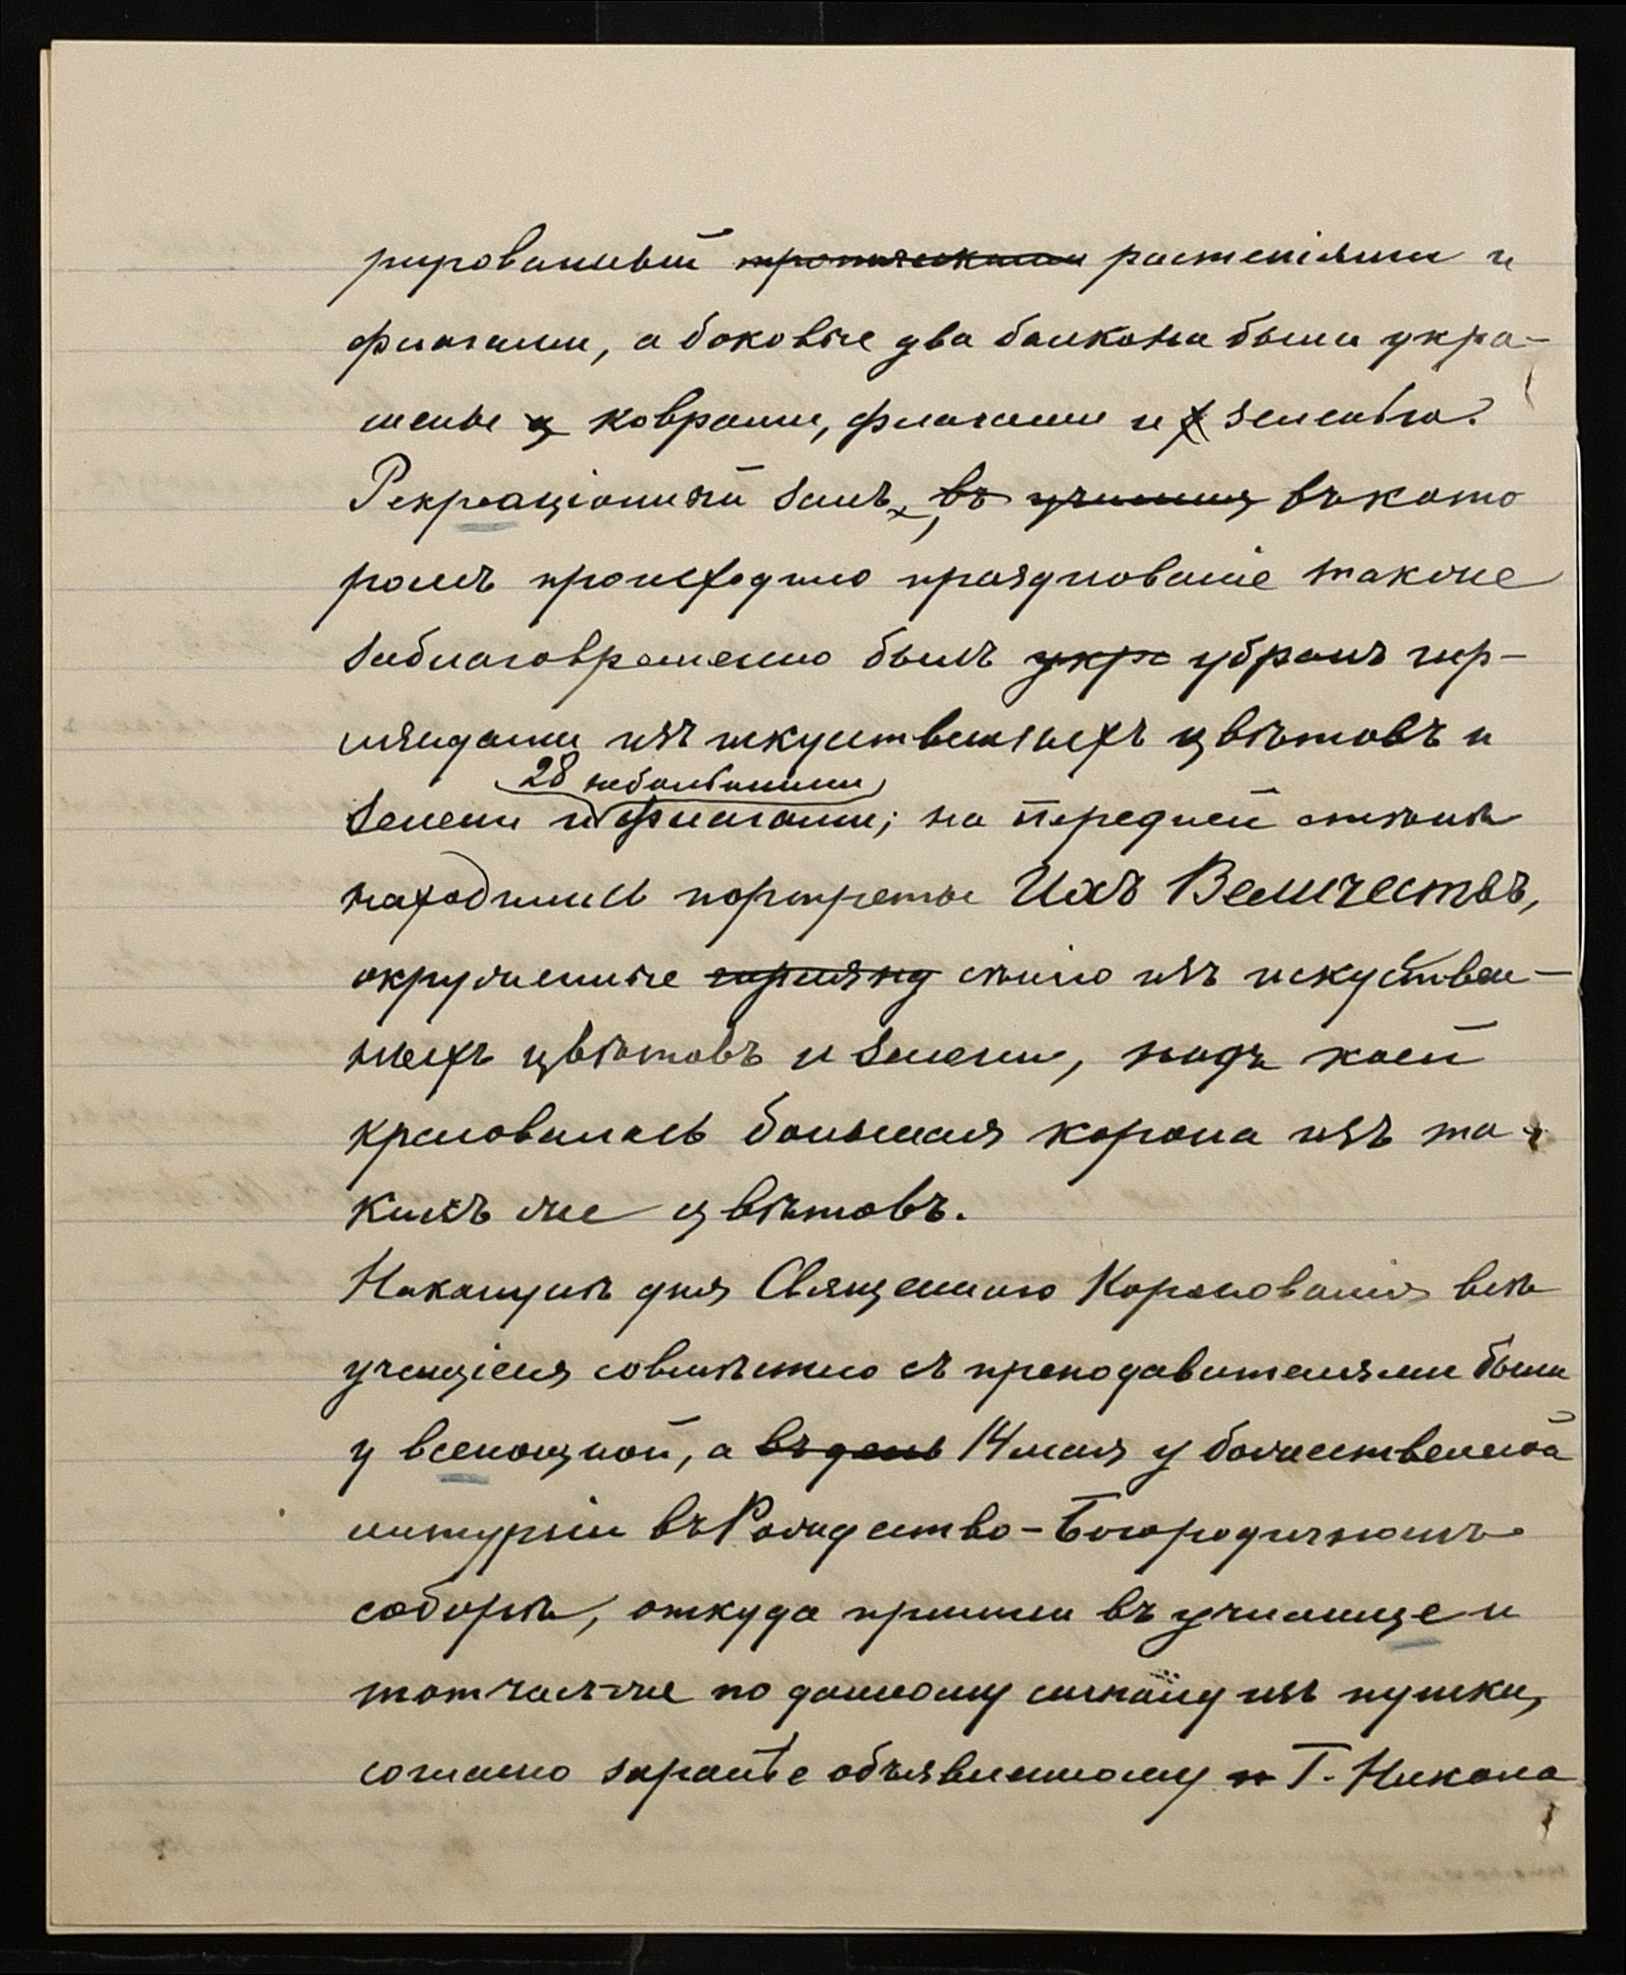 рированный ~~тропическими~~ растеніями и
флагами, а боковые два балкона были укра-
шены ковралми, флагами и зеленью.
Рекреаціонный залъ, ~~въ училищ~~ въ кото
ромъ происходило празднованіе также
заблаговременно былъ ~~укра~~ убранъ гир-
ляндами изъ искуственныхъ цвѣтовъ и
28 небольшими
зелени и флагами; на передней стѣнѣ
находились портреты Ихъ Величествъ,
окруженные ~~гирлянд~~ сѣнью изъ искуствен-
ныхъ цвѣтовъ и зелени, надъ коей
красовалась большая корона изъ та-
кихъ же цвѣтовъ.
Наканунѣ дня Священнаго Коронованія всѣ
учащіеся совмѣстно съ преподавателями были
у всенощной, а ~~въ день~~ 14 мая у божественной
литургіи въ Рождество-Богородичномъ
соборѣ, откуда пришли въ училище и
тотчасъ-же по данному сигналу изъ пушки,
согласно заранѣе объявленному ~~п~~ Г. Никола